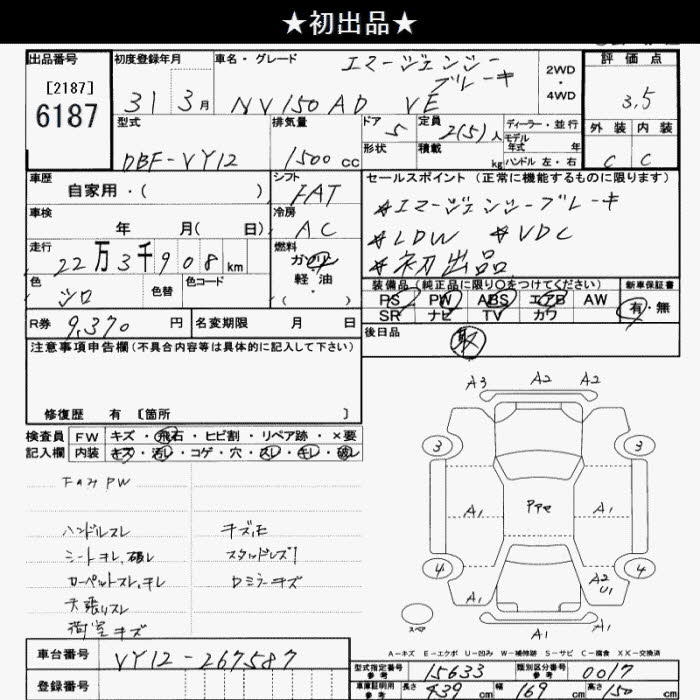 ★初出品★
出品番号
[2187]
6187
初度登録年月
31 3月
車名・グレード
エマージェンシー
ブレーキ
NV150 AD VE
2WD
・
4WD
評価点
3.5
外装 内装
C C
型式
DBF-VY12
排気量
1500 cc
ドア
5
定員
2(5)人
ディーラー・並行
モデル
年式 年
形状
積載
kg
ハンドル 左・右
車歴
自家用・( )
シフト
FAT
セールスポイント (正常に機能するものに限ります)
＊エマージェンシーブレーキ
＊LDW ＊VDC
＊初出品
車検
年 月( 日)
冷房
AC
走行
22万3千908km
燃料
ガソリン
軽油
色
シロ
色替
色コード
装備品 (純正品に限り〇をつけてください)
新車保証書
PS PW ABS エアB AW
SR ナビ TV カワ
有・無
R券 9,370 円
名変期限 月 日
後日品
取
注意事項申告欄(不具合内容等は具体的に記入して下さい)
修復歴 有 [箇所 ]
検査員
記入欄
FW キズ・飛石・ヒビ割・リペア跡・×要
内装 キズ・汚レ・コゲ・穴・スレ・キレ・破レ
ハンドルスレ
シートヨレ、破レ
カーペットスレ、キレ
天張リスレ
荷室キズ
スタッドレス
ロミラーキズ
A3 A2 A2
3 3
A1 A1
A1 A1
4 4
A1
A2
U1
スペア
A1 A1
A-キズ E-エクボ U-凹み W-補修跡 S-サビ C-腐食 XX-交換済
車台番号
VY12-267587
登録番号
型式指定番号
参考
15633
類別区分番号
参考
0017
車庫証明用
参考
長さ 439 cm
幅 169 cm
高さ 150 cm